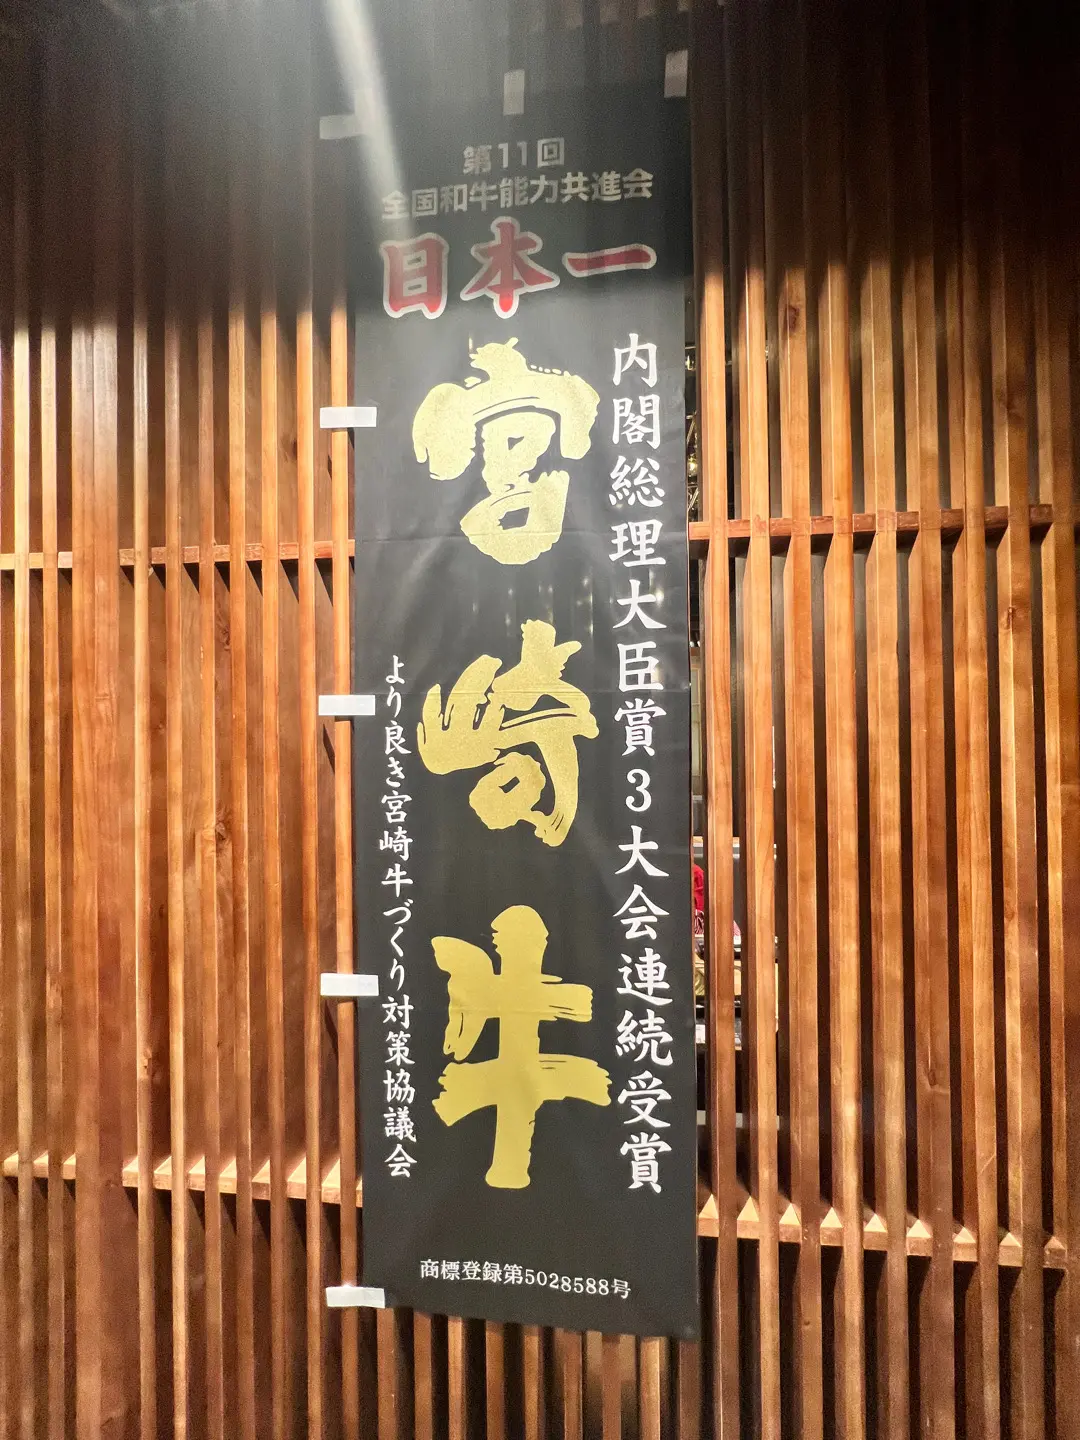 第11回
全国和牛能力共進会
日本一
内閣総理大臣賞3大会連続受賞
宮崎牛
より良き宮崎牛づくり対策協議会
商標登録第5028588号